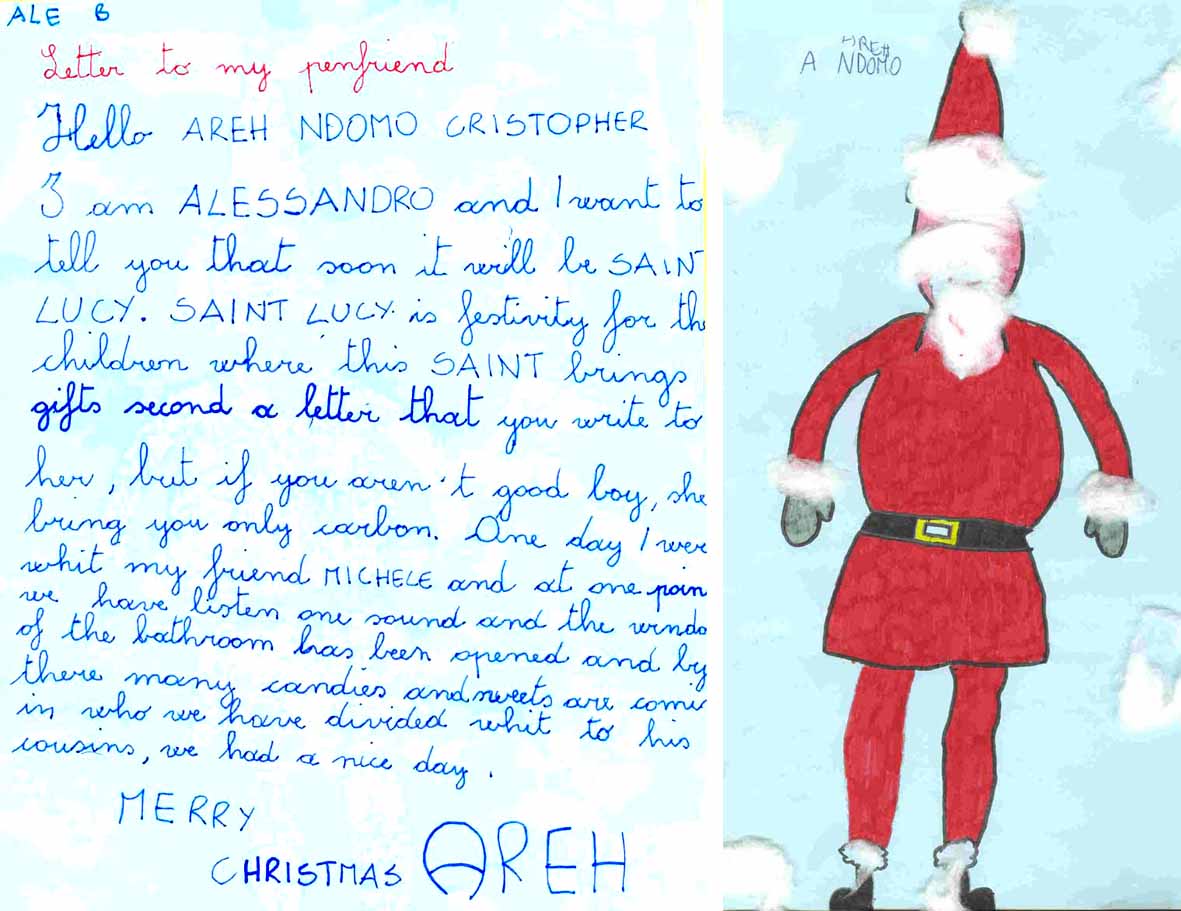 ALE B
Letter to my penfriend
Hello AREH NDOMO CRISTOPHER
I am ALESSANDRO and I want to
tell you that soon it will be SAINT
LUCY. SAINT LUCY is festivity for the
children where this SAINT brings
gifts second a letter that you write to
her, but if you aren't good boy, she
bring you only carbon. One day I wer
whit my friend MICHELE and at one poin
we have listen one sound and the windo
of the bathroom has been opened and by
there many candies and sweets are come
in who we have divided whit to his
cousins, we had a nice day.
MERRY
CHRISTMAS AREH
AREH
A NDOMO